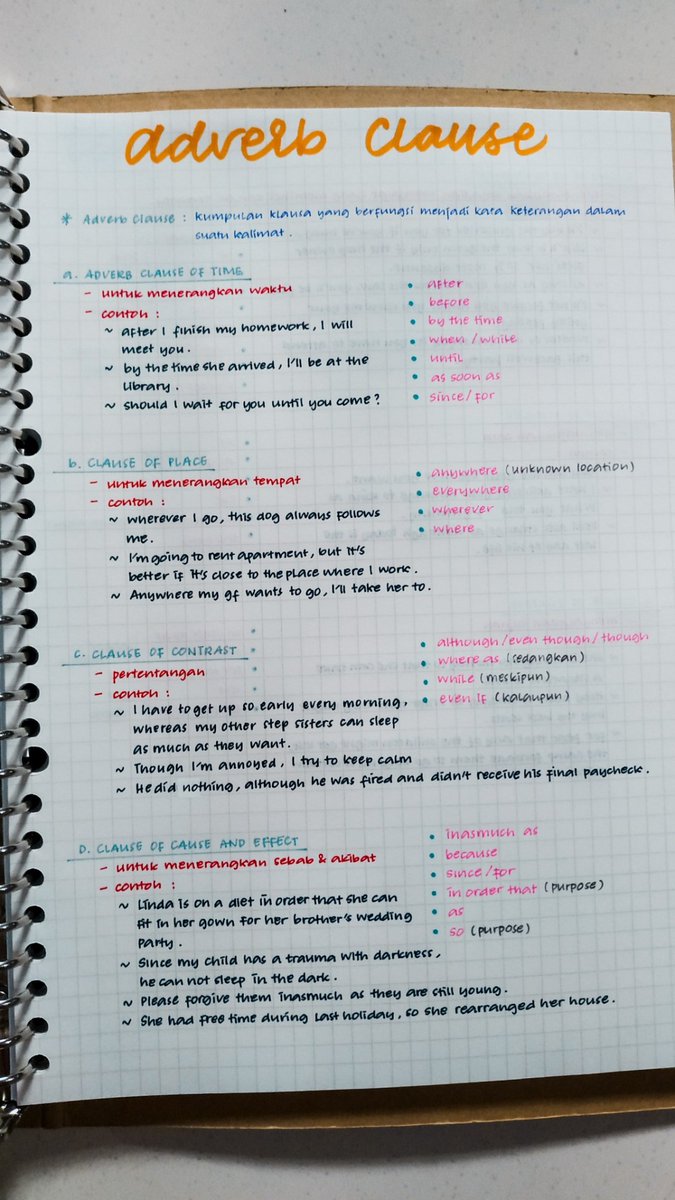 adverb clause
* Adverb Clause : kumpulan klausa yang berfungsi menjadi kata keterangan dalam
suatu kalimat.
a. ADVERB CLAUSE OF TIME
- untuk menerangkan waktu
- contoh :
~ after I finish my homework, I will
meet you.
~ by the time she arrived, I'll be at the
library.
~ should I wait for you until you come?
• after
• before
• by the time
• when / while
• until
• as soon as
• since / for
b. CLAUSE OF PLACE
- untuk menerangkan tempat
- contoh :
~ wherever I go, this dog always follows
me.
~ I'm going to rent apartment, but it's
better if it's close to the place where I work.
~ Anywhere my gf wants to go, I'll take her to.
• anywhere (unknown location)
• everywhere
• wherever
• where
c. CLAUSE OF CONTRAST
- pertentangan
- contoh :
~ I have to get up so early every morning,
whereas my other step sisters can sleep
as much as they want.
~ Though I'm annoyed, I try to keep calm
~ He did nothing, although he was fired and didn't receive his final paycheck.
• although / even though / though
• where as (sedangkan)
• while (meskipun)
• even if (kalaupun)
D. CLAUSE OF CAUSE AND EFFECT
- untuk menerangkan sebab & akibat
- contoh :
~ Linda is on a diet in order that she can
fit in her gown for her brother's wedding
party.
~ Since my child has a trauma with darkness,
he can not sleep in the dark.
~ Please forgive them inasmuch as they are still young.
~ She had free time during last holiday, so she rearranged her house.
• inasmuch as
• because
• since / for
• in order that (purpose)
• as
• so (purpose)